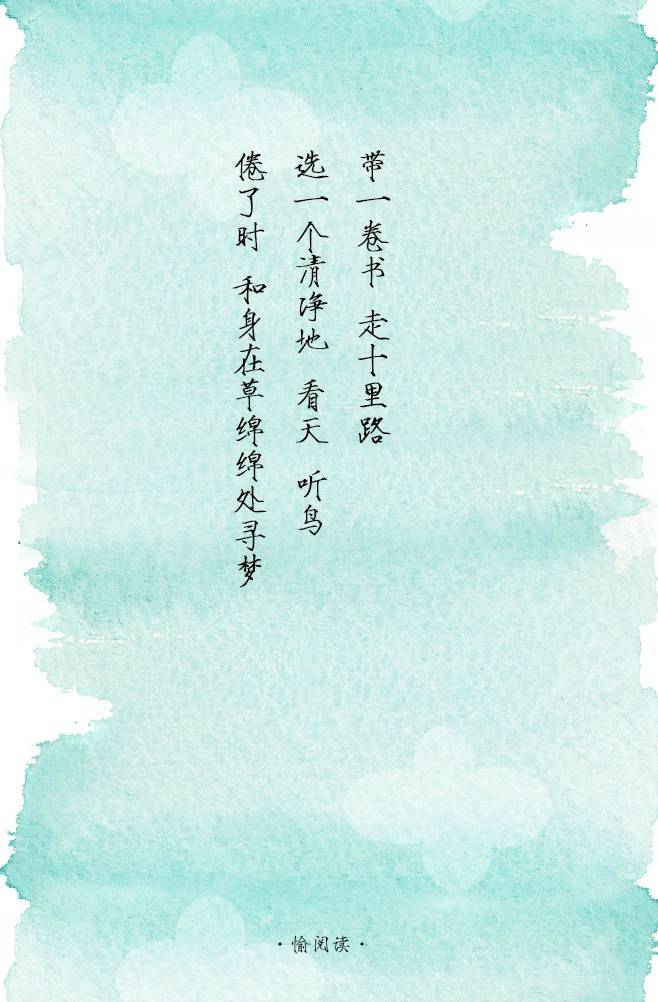 带一卷书 走十里路
选一个清净地 看天 听鸟
倦了时 和身在草绵绵处寻梦
·愉阅读·